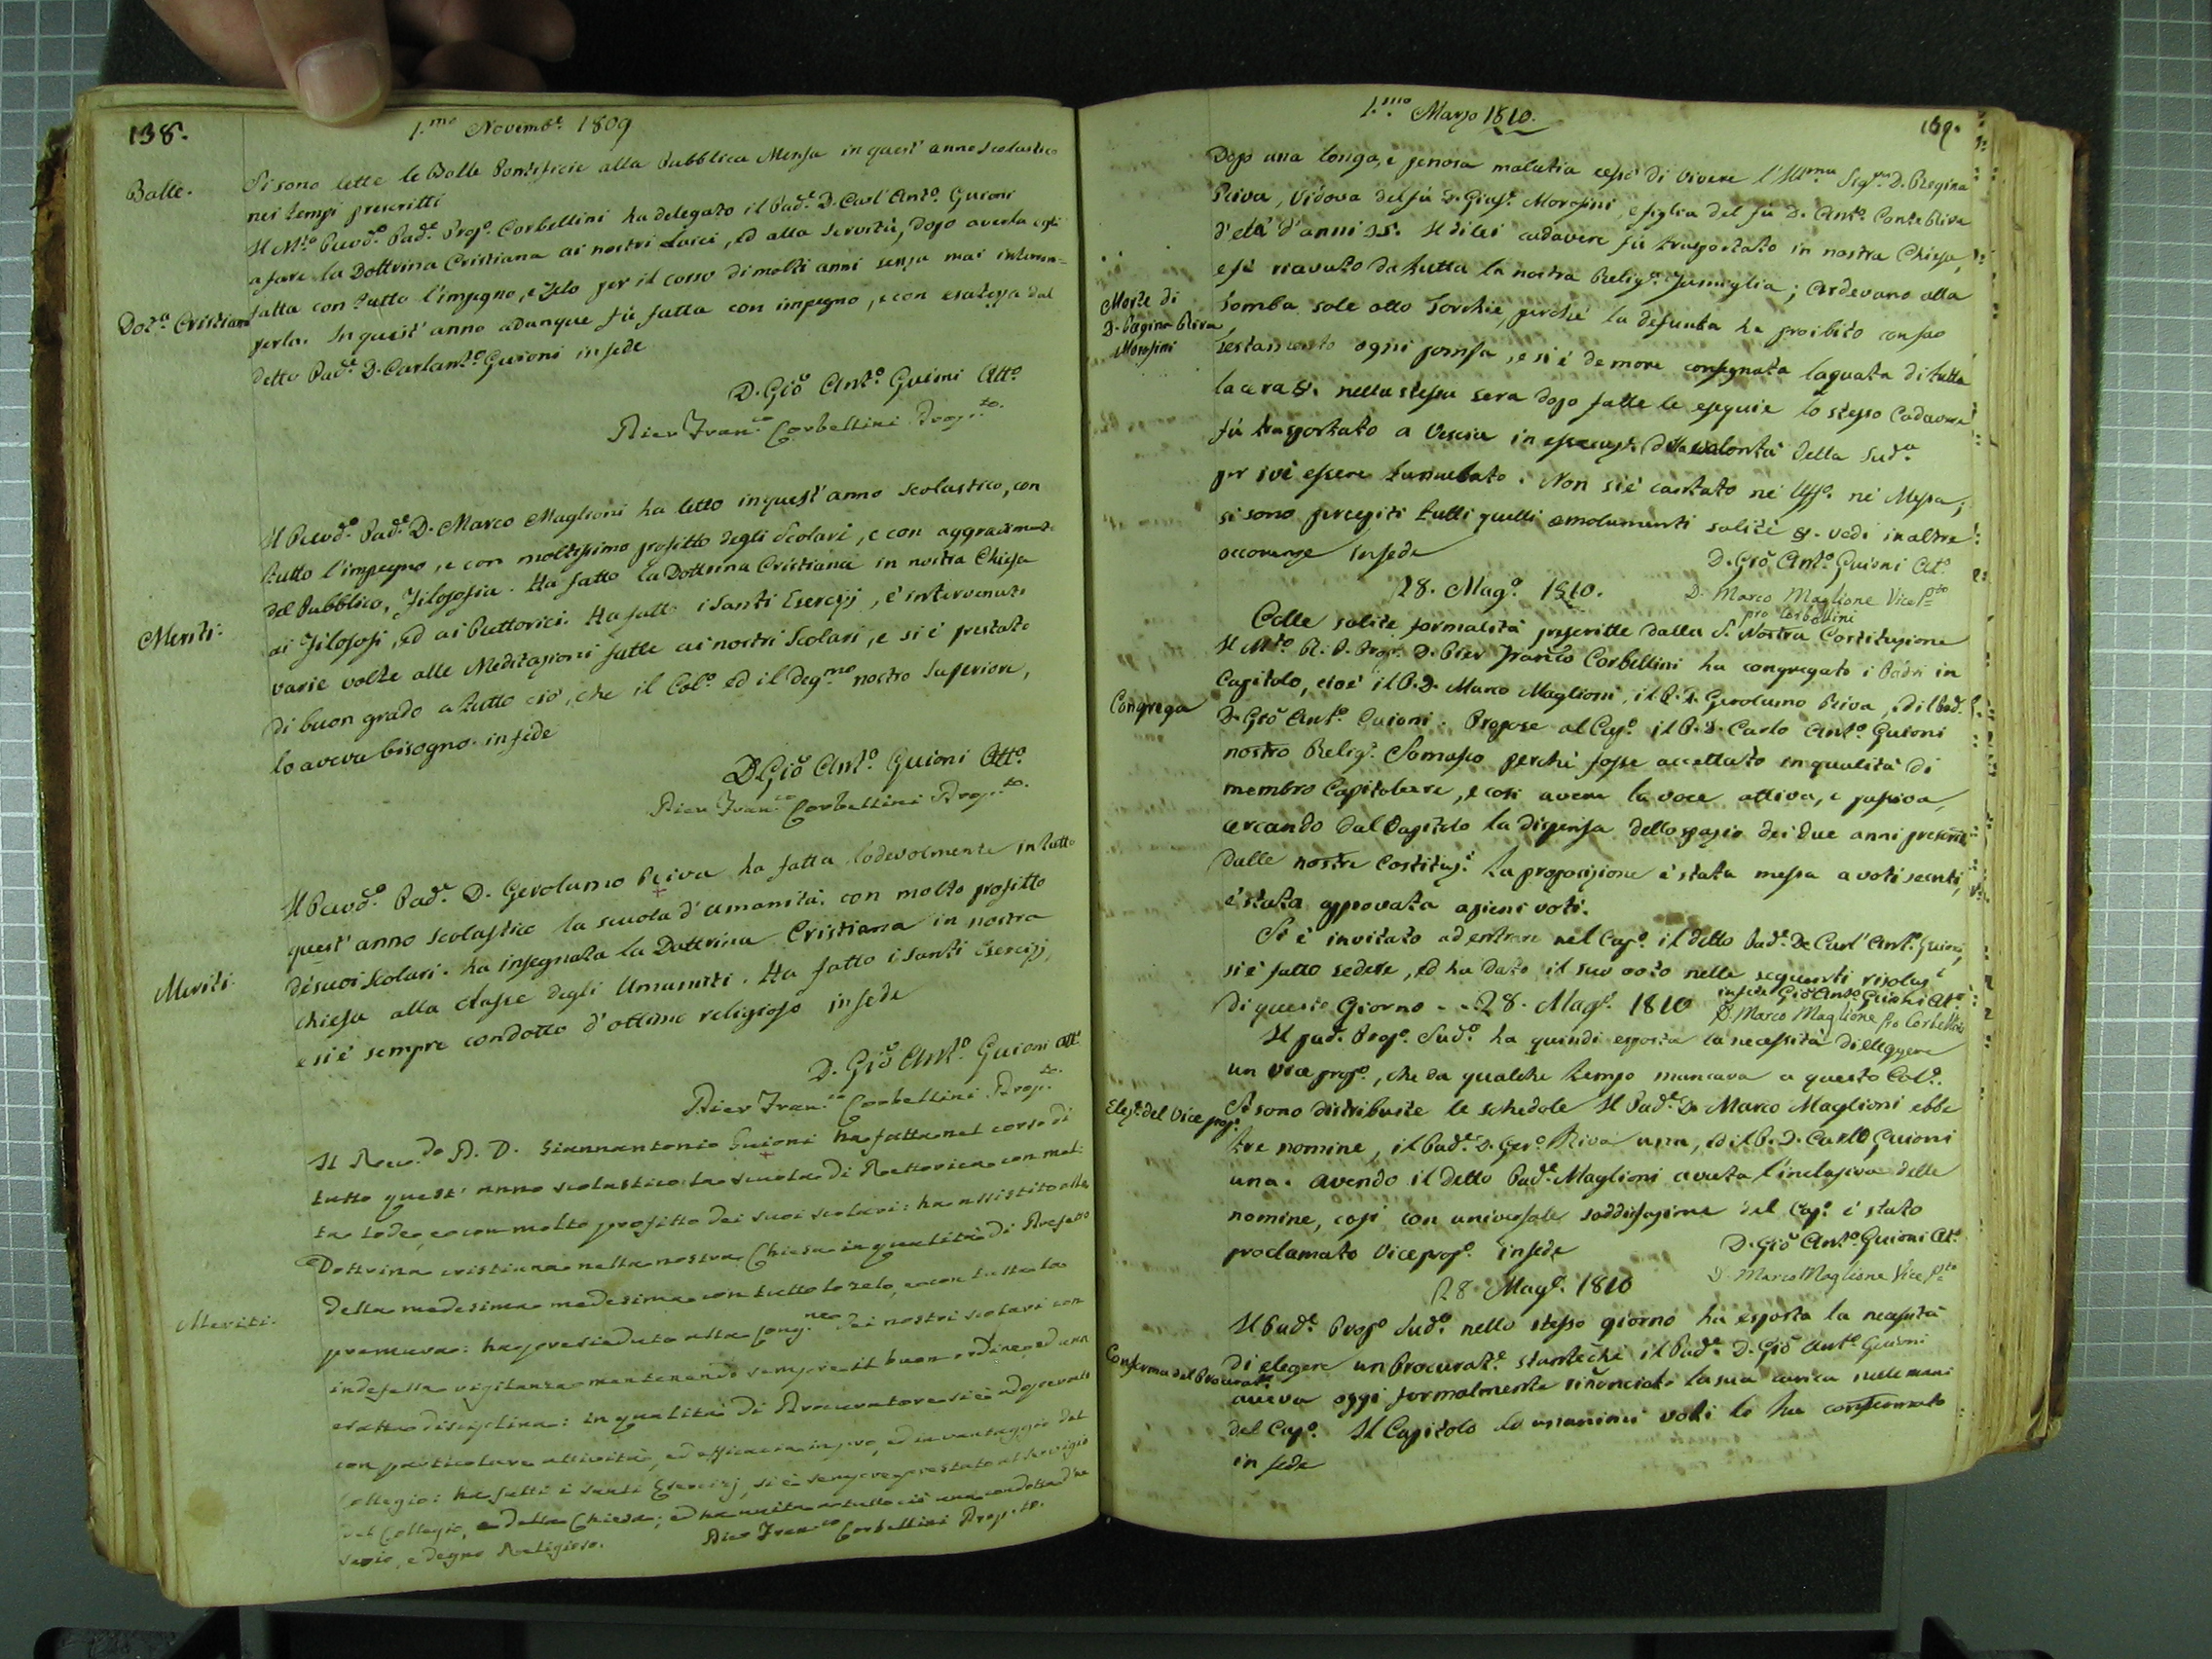 138.
1.mo Novemb.e 1809
Bolle.
Si sono lette le Bolle Pontificie alla Pubblica Mensa in quest' anno scolastico
nei tempi prescritti
Il M.to Revd.o Pad.e Prop.o Corbellini ha delegato il Pad.e D. Carl' Ant.o Guioni
a fare la Dottrina Cristiana ai nostri Laici, ed alla Servitù, dopo averla egli
Dot.a Cristiana
fatta con tutto l'impegno, e zelo per il corso di molti anni senza mai interom=
perla. In quest' anno adunque fù fatta con impegno, e con esatezza dal
detto Pad.e D. Carlant.o Guioni in fede
D. Giõ Ant.o Guioni Att.o
Pier Fran.co Corbellini Prop.to
Meriti:
Il Revd.o Pad.e D. Marco Maglioni ha letto in quest' anno scolastico, con
tutto l'impegno, e con moltissimo profitto degli Scolari, e con aggradiment.o
del Pubblico, Filosofia. Ha fatto la Dottrina Cristiana in nostra Chiesa
ai Filosofi, ed ai Rettorici. Ha fatto i Santi Esercizj, è intervenuto
varie volte alle Meditazioni fatte ai nostri Scolari, e si è prestato
di buon grado a tutto ciò, che il Col.o ed il deg.mo nostro Superiore,
lo aveva bisogno. in fede
D. Giõ Ant.o Guioni Att.o
Pier Fran.co Corbellini Prop.to
Meriti
Il Revd.o Pad.e D. Gerolamo Riva ha fatta lodevolmente in tutto
quest' anno scolastico la scuola d' umanità con molto profitto
de' suoi Scolari. ha insegnata la Dottrina Cristiana in nostra
Chiesa alla classe degli Umanisti. Ha fatto i Santi Esercizj,
e si è sempre condotto d' ottimo religioso in fede
D. Giõ Ant.o Guioni Att.o
Pier Fran.co Corbellini Prop.to
Meriti:
Il Rev.do P. D. Giannantonio Guioni ha fatta nel corso di
tutto quest' anno scolastico la scuola di Rettorica con mol:
ta lode, e con molto profitto dei suoi scolari: ha assistito alla
Dottrina cristiana nella nostra Chiesa in qualità di Prefetto
della medesima medesima con tutto lo zelo, e con tutta la
premura: ha presieduto alla Cong.ne dei nostri scolari con
indefessa vigilanza mantenendo sempre il buon ordine, ed una
esatta disciplina: in qualità di Procuratore si è adoperato
con particolare attività, ed efficacia in pro, ed in vantaggio del
Collegio: ha fatti i Santi Esercizj, si è sempre prestato al servigio
del Collegio, e della Chiesa; ed ha unita a tutto ciò una condotta da
savio, e degno Religioso.
Pier Fran.co Corbellini Prop.to
1.mo Marzo 1810.
139.
Dopo una longa, e penosa malatia cessò di vivere l'Ill.ma Sig.ra D. Regina
Riva, Vidova del fù D. Gius.e Morosini, e figlia del fù D. Ant.o Conte Riva
d' età d' anni 55. Il di lei cadavere fù trasportato in nostra Chiesa,
e fù ricevuto da tutta la nostra Relig.a Famiglia; Ardevano alla
Morte di
D. Regina Riva
Morosini
tomba sole otto Torchie, perchè la defunta ha proibito con suo
testamento ogni pompa, e si è de more consegnata la quarta di tutta
la cera &. nella stessa sera dopo fatte le esequie lo stesso Cadavere
fù trasportato a Vescia in della volontà della Sud.a
per ivi essere tumulato. Non si è cantato nè Uff.o nè Messa,
si sono percepiti tutti quelli emolumenti soliti &. vedi in altre
occorenze In fede
D. Giõ Ant.o Guioni At.o
D. Marco Maglione Vice P.to
pro Corbellini
28. Mag.o 1810.
Colle solite formalità prescritte dalla S. Nostra Costituzione
Il M.to R. P. Prop. D. Pier Franco Corbellini ha congregato i Padri in
Congrega
Capitolo, cioè il P. D. Marco Maglioni, il P. D. Gerolamo Riva, ed il Pad.
D. Giõ Ant.o Guioni. Propose al Cap.o il P. D. Carlo Ant.o Guioni
nostro Relig.o Somasco perchè fosse accettato in qualità di
membro Capitolare, e così avere la voce attiva, e passiva,
cercando dal Capitolo la dispensa dello spazio dei due anni prescritti
dalle nostre Costituz.i La proposizione è stata messa a voti secreti,
è stata approvata a pieni voti.
Si è invitato ad entrare nel Cap.o il detto Pad.e D. Carl' Ant.o Guioni,
si è fatto sedere, ed ha dato il suo voto nelle seguenti risoluz.i
di questo Giorno - - 28. Mag.o 1810
in fede Giõ Anto Guioni At.o
D. Marco Maglione pro Corbellini
Il Pad. Prop.o Sud.o ha quindi esposta la necessità di elleggere
un Vice prop.o, che da qualche tempo mancava a questo Col.o
Elez.e del Vice prop.o
Si sono distribuite le schedole Il Pad.e D. Marco Maglioni ebbe
tre nomine, il Pad.e D. Ger.o Riva una, ed il P. D. Carlo Guioni
una. Avendo il detto Pad.e Maglioni avuta l'inclusiva delle
nomine, così con universale soddisfazione del Cap.o è stato
proclamato Viceprop.o in fede
D. Giõ Ant.o Guioni At.o
D. Marco Maglione Vice P.to
28. Mag.o 1810
Il Pad.e Prop.o Sud.o nello stesso giorno ha esposta la necessità
Conferma del Procurat.e
di elegere un Procurat.e stantechè il Pad.e D. Giõ Ant.o Guioni
aveva oggi formalmente rinonciato la sua carica nelle mani
del Cap.o Il Capitolo ad unanimi voti lo ha confermato
in fede